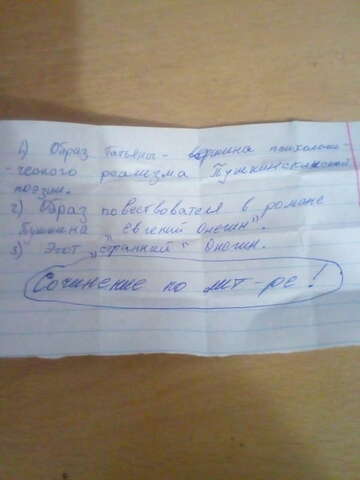 1) Образ Татьяны - вершина психологи-
-ческого реализма Пушкинской
поэзии.
2) Образ повествователя в романе
Пушкина „Евгений Онегин".
3) Этот „странный" Онегин.
Сочинение по лит-ре!